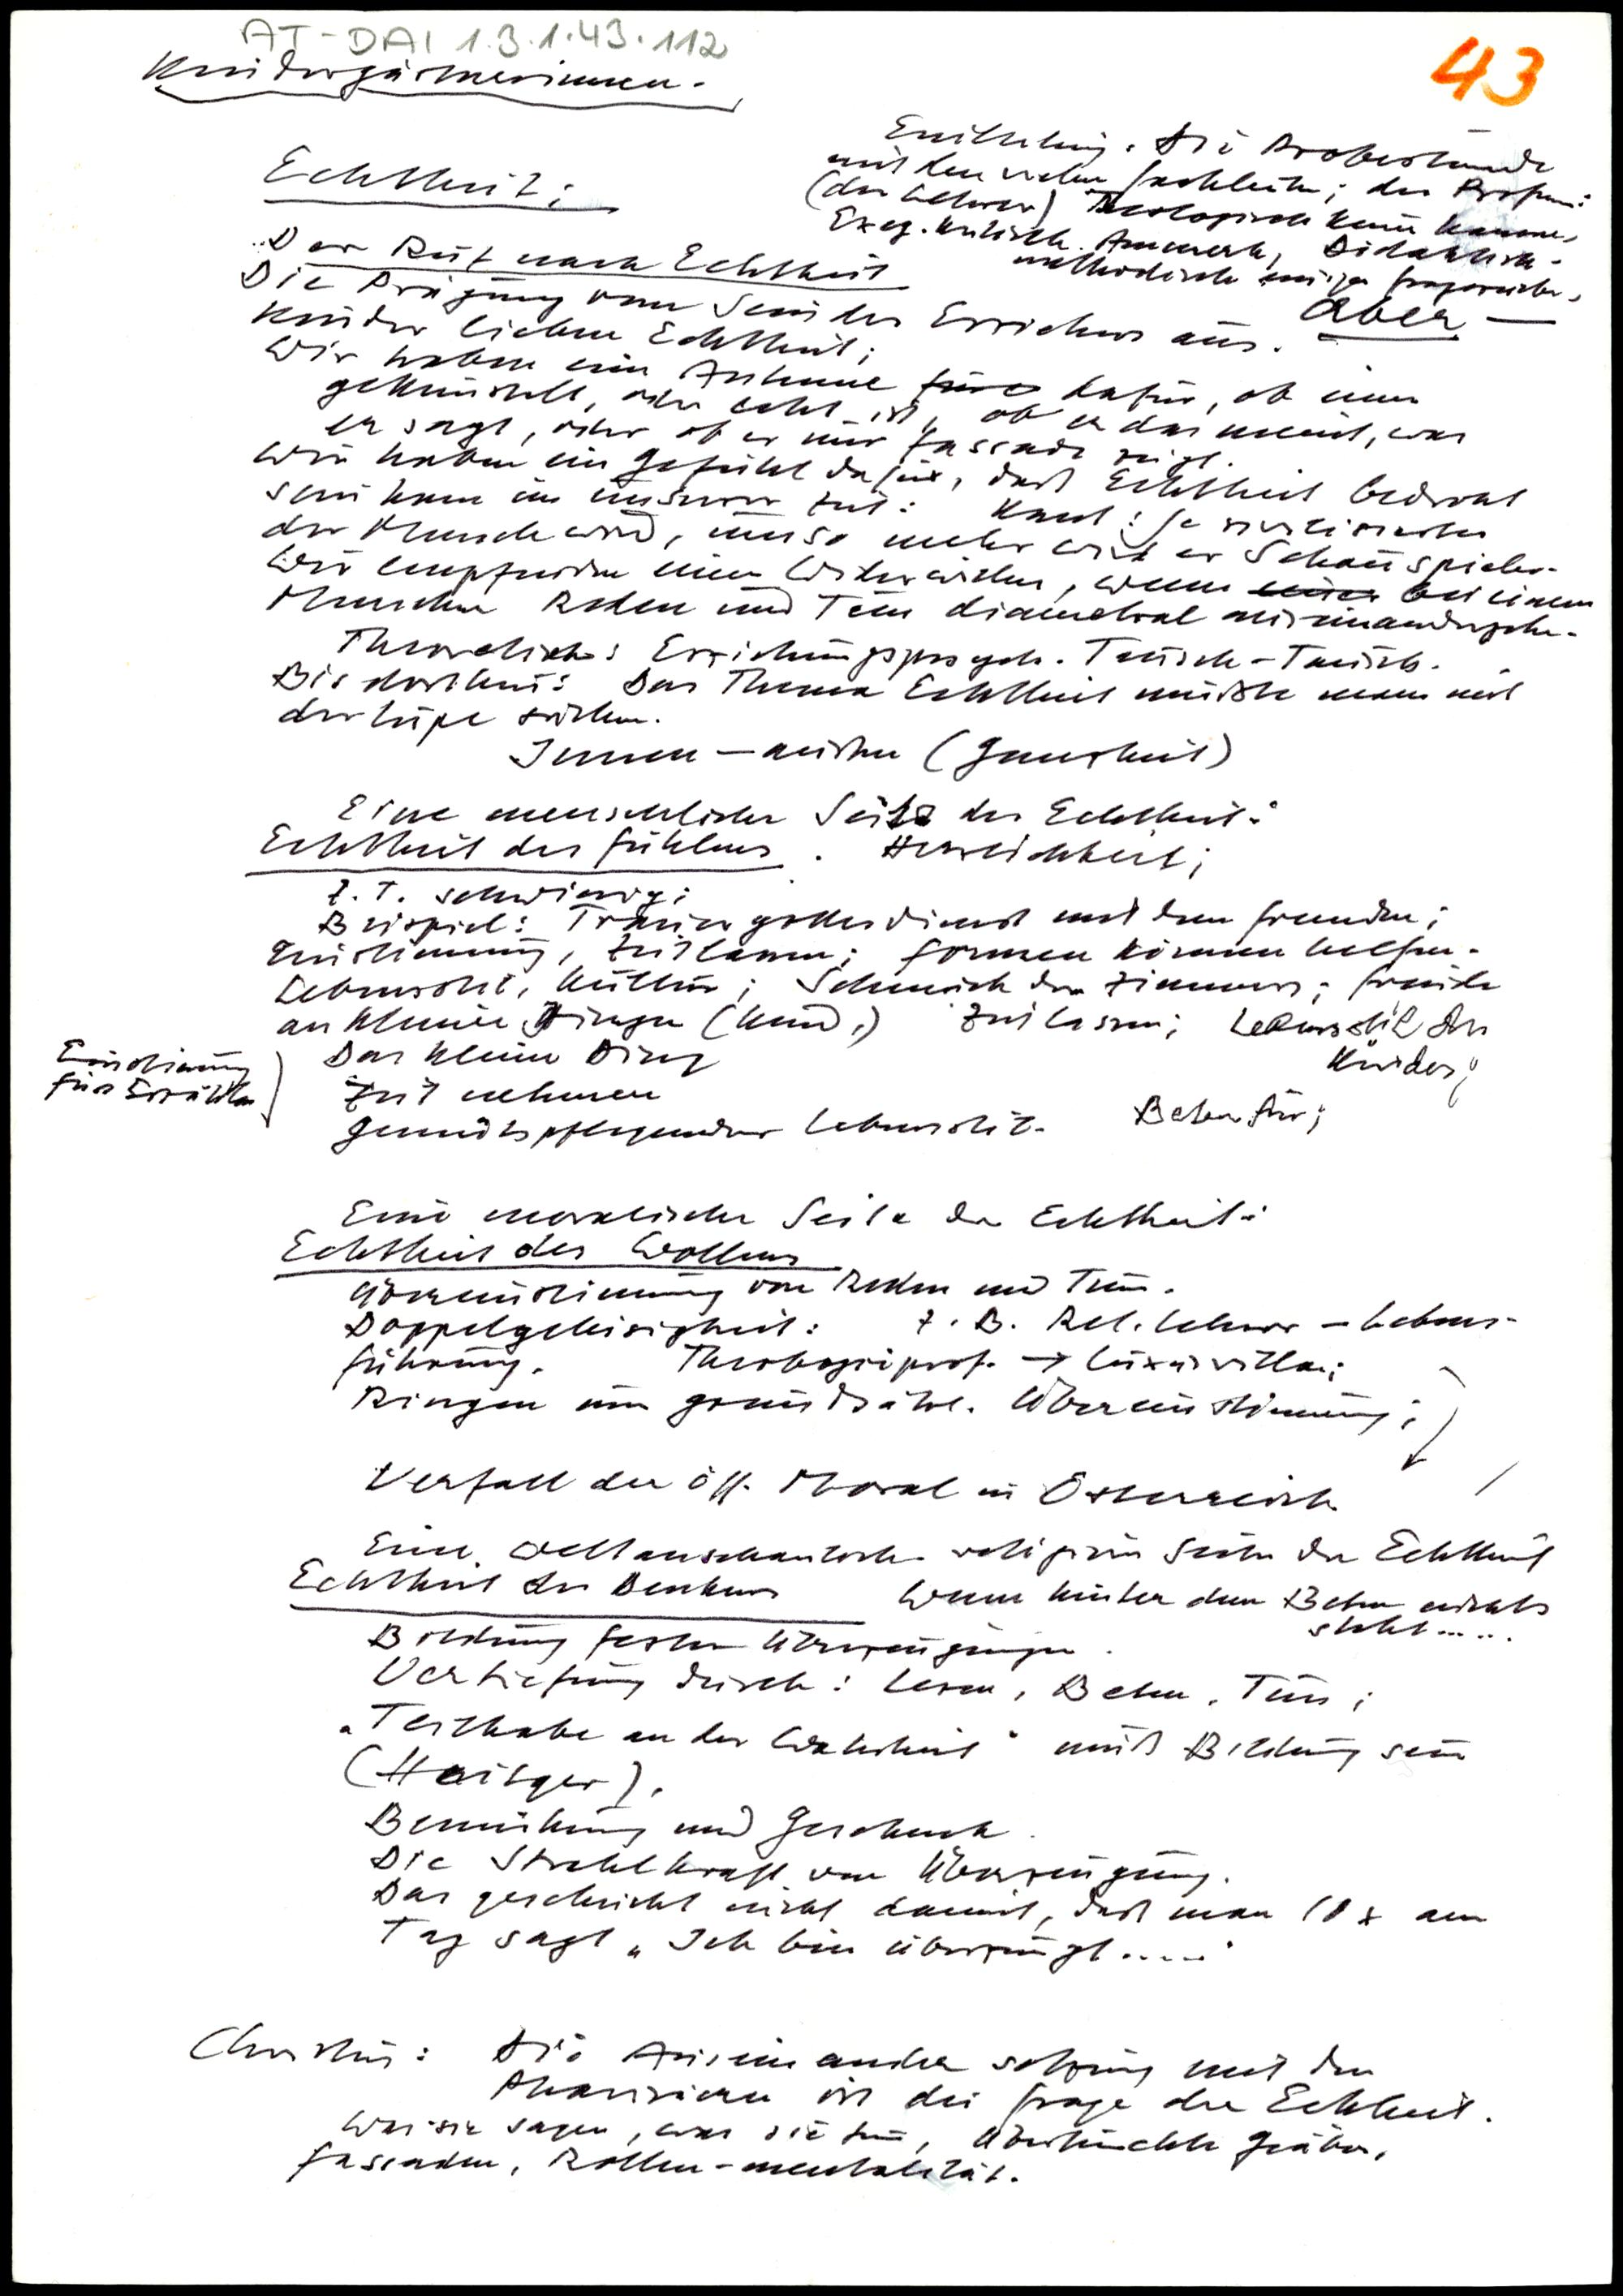 AT-DAI 1.3.1.43.112
43
Kindergärtnerinnen.
Echtheit:
Einleitung: Die Probestunde
mit den vielen Fachleuten; der Professor:
(der Lehrer) Theologisch keine
Exeg. kritisch. Anmerk, Didaktisch-
methodisch einige Fragezeichen,
Aber —
Der Ruf nach Echtheit
Die Prägung vom Sein des Erziehers aus.
Kinder lieben Echtheit;
Wir haben eine Antenne dafür, ob einer
gekünstelt, oder echt ist, ob er das meint, was
er sagt, oder ob er nur Fassade zeigt.
Wir haben ein Gefühl dafür, daß Echtheit bedroht
sein kann in unserer Zeit: Kant: Je zivilisierter
der Mensch wird, umso mehr wird er Schauspieler.
Wir empfinden einen Widerwillen, wenn bei einem
Menschen Reden und Tun diametral auseinandergehen.
Theoretisch: Erziehungspsych. Tausch-Tausch.
Bis dorthin: Das Thema Echtheit müßte man mit
der Lupe suchen.
Innen – außen (Ganzheit)
Eine menschliche Seite der Echtheit:
Echtheit des Fühlens. Herzlichkeit;
z.T. schwierig;
Beispiel: Trauergottesdienst mit dem Fremden;
Einstimmung, Zeit lassen; Formen können helfen.
Lebensstil, Kultur; Schmuck des Zimmers; Freude
an kleinen Dingen (Kind,) Zeit lassen; Lebensstil des
Kindes;
Einstimmung
fürs Erzählen
Das kleine Ding
Zeit nehmen
Gemütspflegender Lebensstil. Beten für;
Eine moralische Seite der Echtheit:
Echtheit des Wollens
Übereinstimmung von Reden und Tun.
Doppelgeleisigkeit: z.B. Rel. Lehrer – Lebens-
führung. Theologieprof. → Luxusvilla;
Ringen um grundsätzl. Übereinstimmung;
Verfall der öff. Moral in Österreich
Eine weltanschaulich-religiöse Seite der Echtheit
Echtheit des Denkens Wenn hinter dem Beten nichts
steht.....
Bildung fester Überzeugungen.
Vertiefung durch: Lesen, Beten, Tun;
„Teilhabe an der Wahrheit“ muß Bildung sein
(Heitger).
Bemühung und Geschenk.
Die Strahlkraft von Überzeugung.
Das geschieht nicht damit, daß man 10 x am
Tag sagt „Ich bin überzeugt.....“
Christus: Die Auseinandersetzung mit den
Pharisäern ist die Frage der Echtheit.
Was sie sagen, was sie tun, Übertünchte Gräber,
Fassaden, Rollen-mentalität.